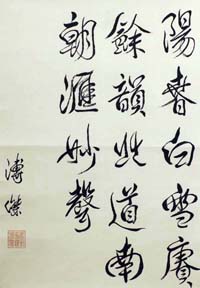 陽春白雪賡
餘韻此道南
朝滙妙聲
溥傑